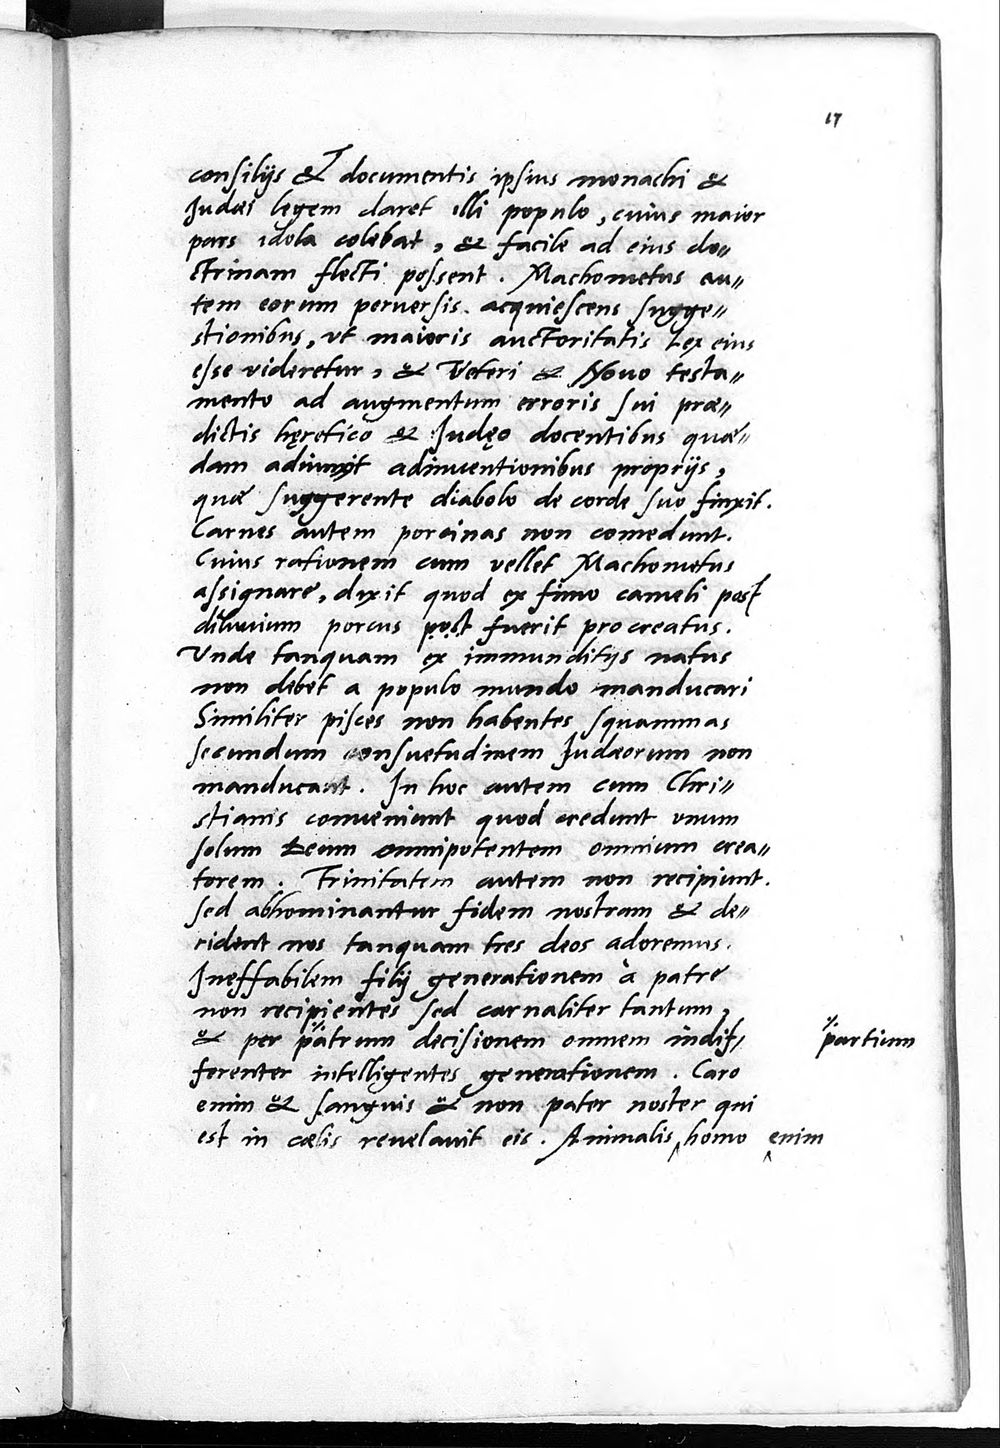 17
consilijs & documentis ipsius monachi &
Judæi legem daret illi populo, cuius maior
pars idola colebat, & facile ad eius do〃
ctrinam flecti possent. Machometus au〃
tem eorum peruersis acquiescens sugge〃
stionibus, vt maioris auctoritatis Lex eius
esse videretur, & Veteri & Nouo testa〃
mento ad augmentum erroris sui præ〃
dictis hęretico & Judęo docentibus quæ〃
dam adiunxit adinuentionibus proprijs,
quæ suggerente diabolo de corde suo finxit.
Carnes autem porcinas non comedunt.
Cuius rationem cum vellet Machometus
assignare, dixit quod ex fimo cameli post
diluuium porcus post fuerit procreatus.
Vnde tanquam ex immunditijs natus
non debet a populo mundo manducari
Similiter pisces non habentes squammas
secundum consuetudinem Judæorum non
manducant. In hoc autem cum Chri〃
stianis conueniunt quod credunt vnum
solum Deum omnipotentem omnium crea〃
torem. Trinitatem autem non recipiunt.
sed abhominantur fidem nostram & de〃
rident nos tanquam tres deos adoremus.
Ineffabilem filij generationem à patre
non recipientes sed carnaliter tantum,
& per patrum decisionem omnem indif〃
partium
ferenter intelligentes generationem. Caro
enim & sanguis & non pater noster qui
est in cælis reuelauit eis. Animalis homo enim